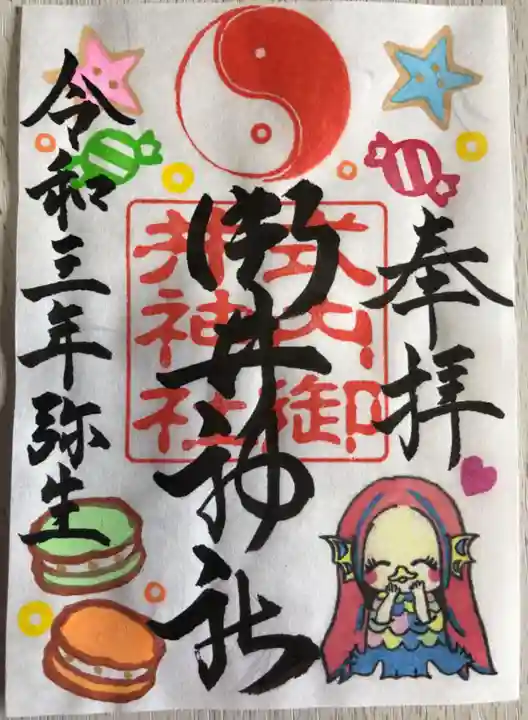 奉拝
式内御
井神社
御井神社
令和三年弥生